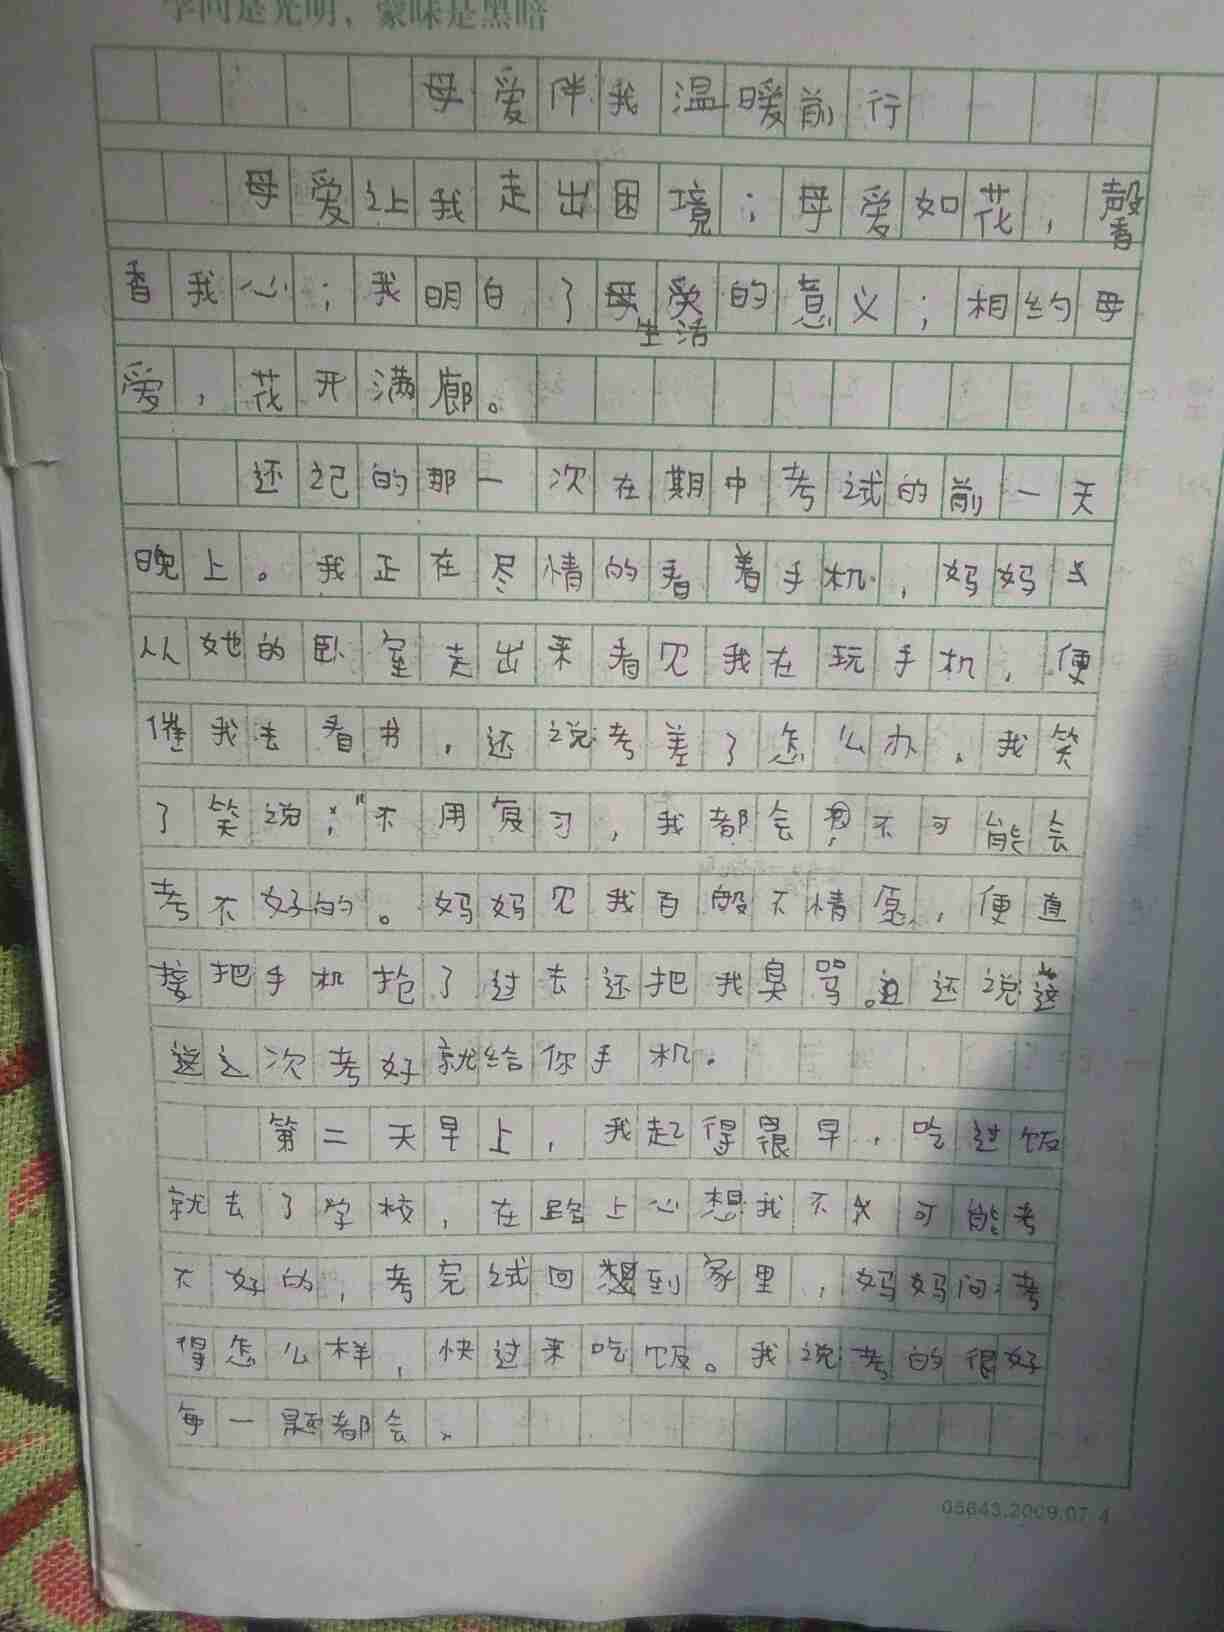 学问是光明，蒙昧是黑暗
母爱伴我温暖前行
母爱让我走出困境；母爱如花，馨
香我心；我明白了生活的意义；相约母
爱，花开满廊。
还记的那一次在期中考试的前一天
晚上。我正在尽情的看着手机，妈妈
从她的卧室走出来看见我在玩手机，便
催我去看书，还说考差了怎么办，我笑
了笑说；“不用复习，我都会，不可能会
考不好的。妈妈见我百般不情愿，便直
接把手机抢了过去还把我臭骂。还说
这次考好就给你手机。
第二天早上，我起得很早，吃过饭
就去了学校，在路上心想我不可能考
不好的，考完试回到家里，妈妈问考
得怎么样，快过来吃饭。我说考的很好
每一题都会、
05643.2009.07.4